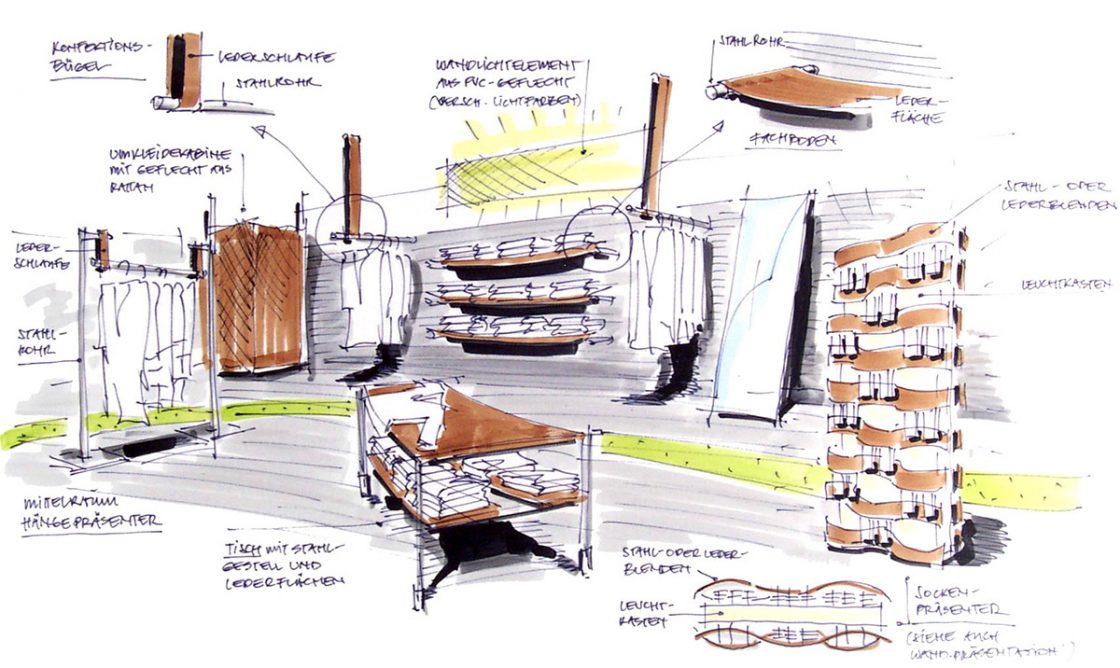 KONFEKTIONS-
BÜGEL
LEDERSCHLAUFE
STAHLROHR
WANDLICHTELEMENT
AUS PVC-GEFLECHT
(VERSCH. LICHTFARBEN)
STAHLROHR
LEDER-
FLÄCHE
FACHBODEN
UMKLEIDEKABINE
MIT GEFLECHT AUS
RATTAN
STAHL- ODER
LEDERBLENDEN
LEDER-
SCHLAUFE
LEUCHTKASTEN
STAHL-
ROHR
MITTELRAUM
HÄNGEPRÄSENTER
TISCH MIT STAHL-
GESTELL UND
LEDERFLÄCHEN
STAHL-ODER LEDER-
BLENDEN
LEUCHT-
KASTEN
SOCKEN-
PRÄSENTER
(SIEHE AUCH
WANDPRÄSENTATION)